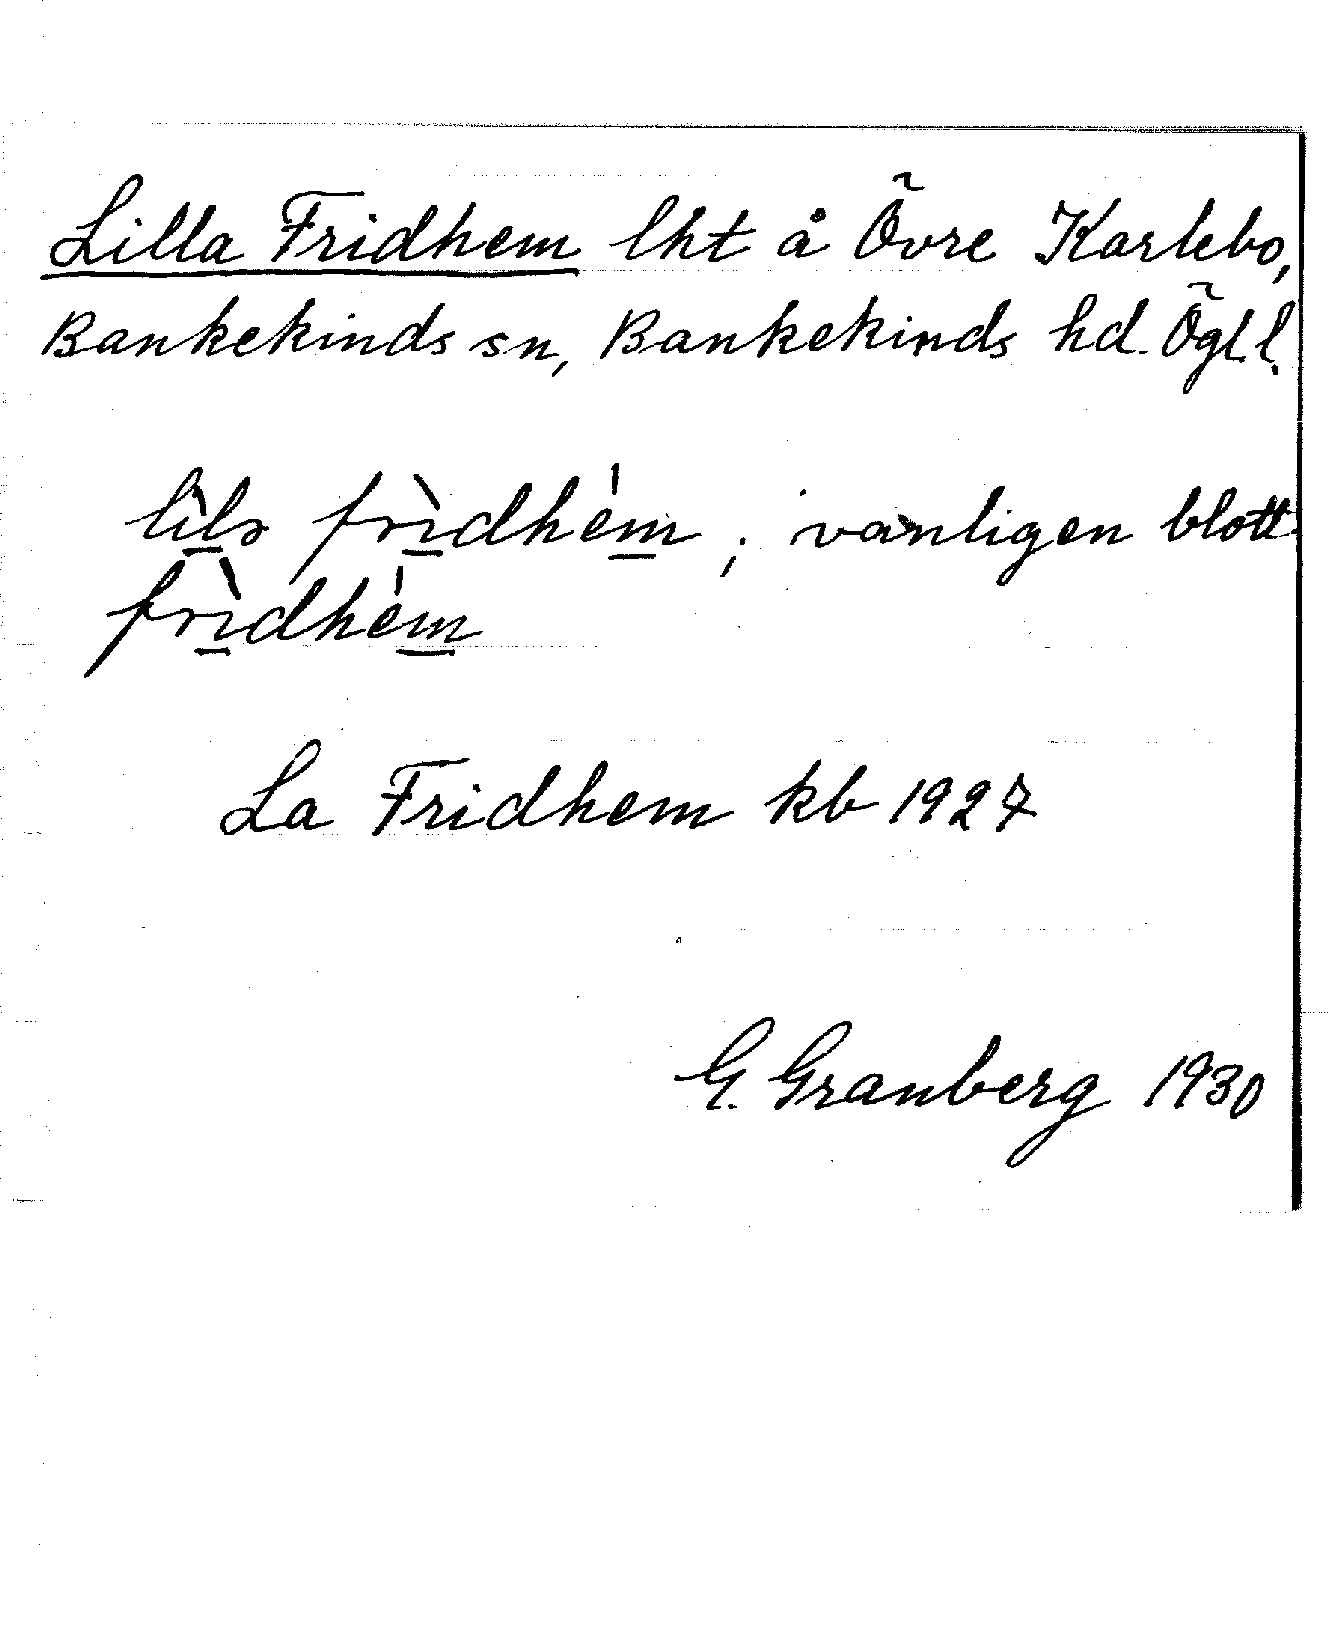 Lilla Fridhem lht å Övre Karlebo,
Bankekinds sn, Bankekinds hd. Ögl l.
frìdhém; vanligen blott
frìdhém
La Fridhem kb 1927
G. Granberg 1930